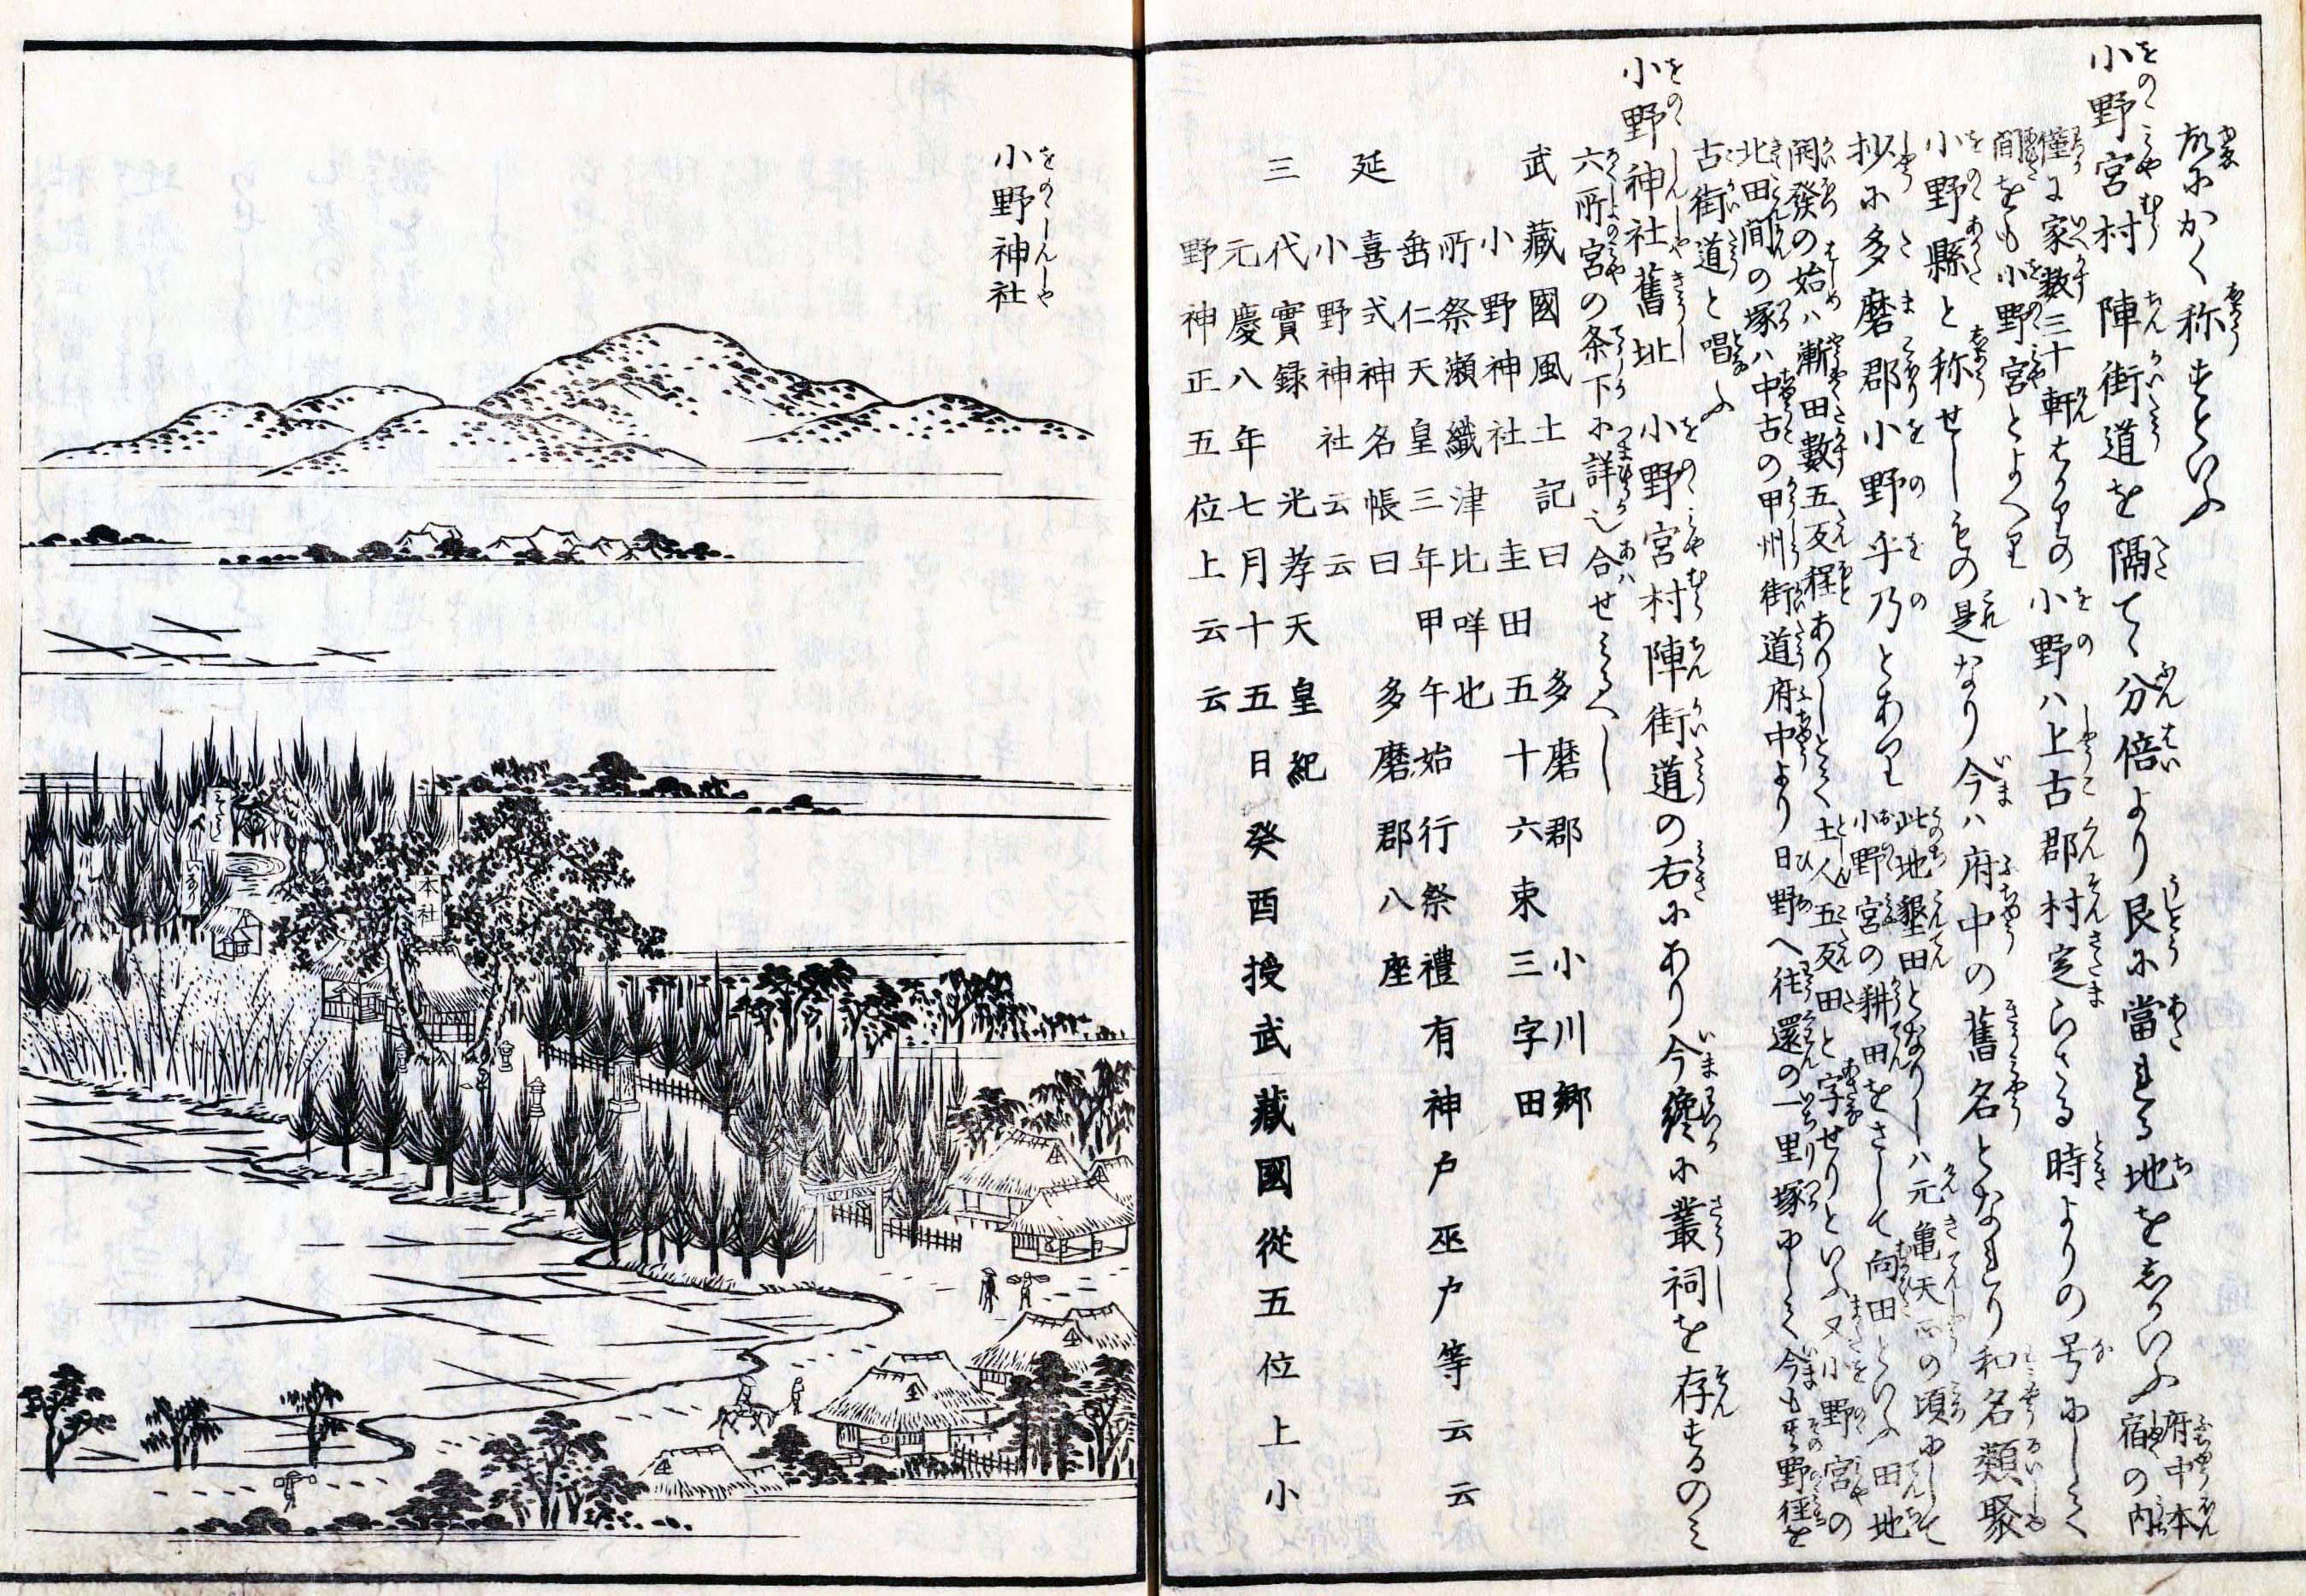 故にかく称すといふ
小野宮村 陣街道を隔てゝ分倍より艮に當れる地をしかいふ 府中本
宿の内
僅に家数三十軒はかりの
間をも小野宮とよへり
小野ハ上古郡村定らさる時よりの号にして
小野縣と称せしもの是なり今ハ府中の舊名となれり和名類聚
抄に多磨郡小野乎乃とあり 此地墾田となりしハ元亀天正の頃にして
小野宮の耕田をさして向田といふ田地
開發の始ハ漸田數五反程ありしとて土人五反田と字せりといふ又小野宮の
北田間の塚ハ中古の甲州街道府中より日野へ往還の一里塚にして今も其野径を
古街道と唱ふ
小野神社舊址 小野宮村陣街道の右にあり今纔に叢祠を存するのみ
六所宮の条下に詳也合せみるへし
武藏國風土記曰 多磨郡 小川郷
小野神社 圭田五十六束三字田
所祭瀬織津比咩也
垂仁天皇三年甲午始行祭禮有神戸巫戸等云云
延喜式神名帳曰 多磨郡八座
小野神社云云
三代實録 光孝天皇紀
元慶八年七月十五日癸酉授武藏國從五位上小
野神正五位上云云
小野神社
をのゝしんしや
本社
いなり